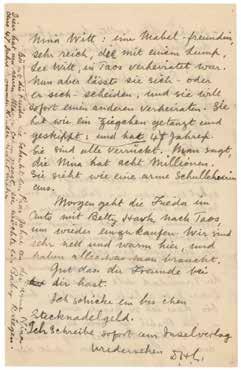 Nina Witt: eine Mabel-freundin,
sehr reich, die mit einem Lump,
Lee Witt, in Taos verheiratet war.
Nun aber lässt sie sich - oder
er sich - scheiden, und sie will
sofort einen anderen verheiraten. Sie
hat wie ein Ziegchen getanzt und
geskippt: und hat 45 Jahre.
Sie sind alle verrückt. Man sagt,
die Nina hat acht Millionen.
Sie sieht wie eine arme Schullehrerin
aus.
Morgen geht die Frieda im
Auto mit Betty Hawk nach Taos,
um wieder einzukaufen. Wir sind
sehr nett und warm hier, und
haben alles was man braucht.
Gut dass die Freunde bei
dir hast.
Ich schicke ein bischen
Stecknadelgeld.
Ich schreibe sofort am Inselverlag
Wiedersehen DHL.